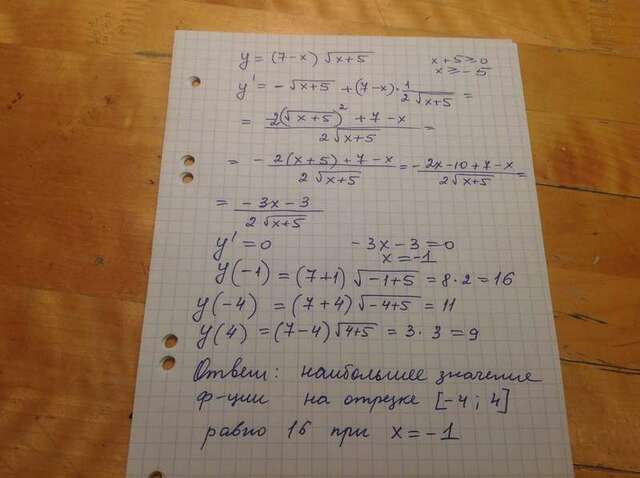 y = (7-x) √(x+5) x+5 ≥ 0
x ≥ -5
y' = -√(x+5) + (7-x)·1/(2√(x+5)) =
= (2(√(x+5))² + 7 - x)/(2√(x+5)) =
= -(2(x+5) + 7 - x)/(2√(x+5)) = -(2x-10+7-x)/(2√(x+5)) =
= (-3x-3)/(2√(x+5))
y' = 0 -3x-3=0
x=-1
y(-1) = (7+1) √(-1+5) = 8·2 = 16
y(-4) = (7+4) √(-4+5) = 11
y(4) = (7-4) √(4+5) = 3·3 = 9
Ответ: наибольшее значение
ф-ции на отрезке [-4; 4]
равно 16 при x = -1